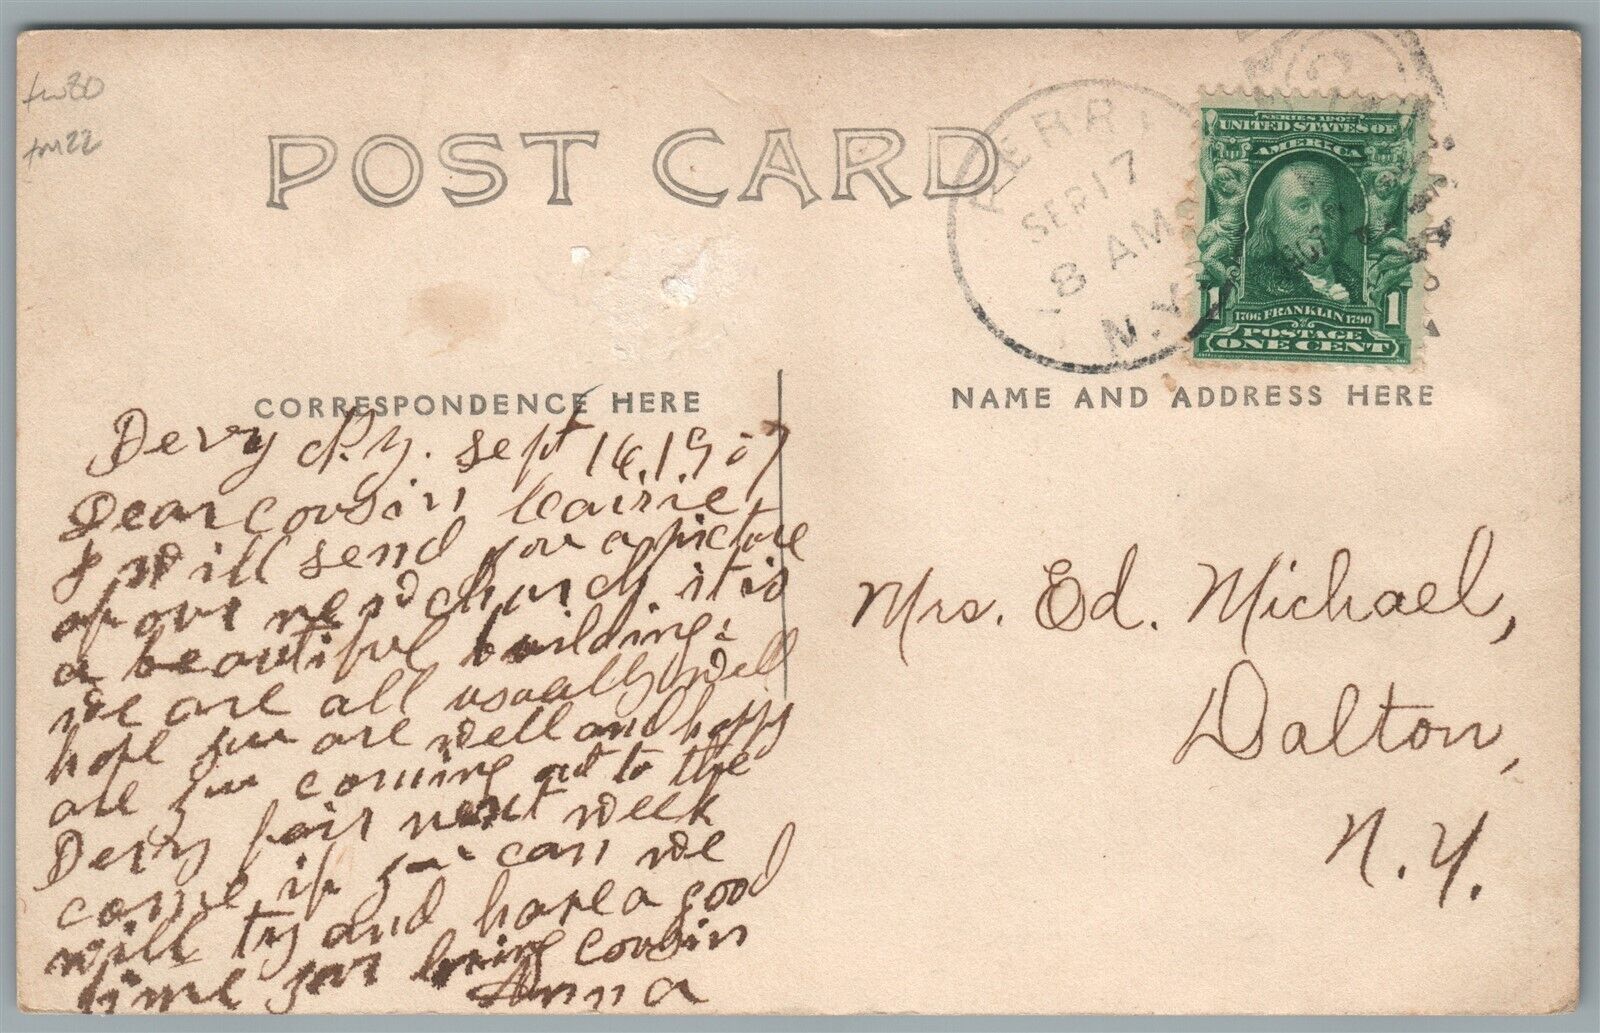 tw80
tm22
POST CARD
PERRY
SEP 17
8 AM
N.Y.
SERIES 1902
UNITED STATES OF
AMERICA
1 1706 FRANKLIN 1790 1
POSTAGE
ONE CENT
CORRESPONDENCE HERE
NAME AND ADDRESS HERE
Perry N.Y. Sept 16, 1907
Dear cousin Carrie,
I will send you a picture
of our new church, it is
a beautiful building:
we are all usually well
hope you are well and happy
are you coming out to the
Perry fair next week
come if you can we
will try and have a good
time your loving cousin
Anna
Mrs. Ed. Michael,
Dalton,
N.Y.